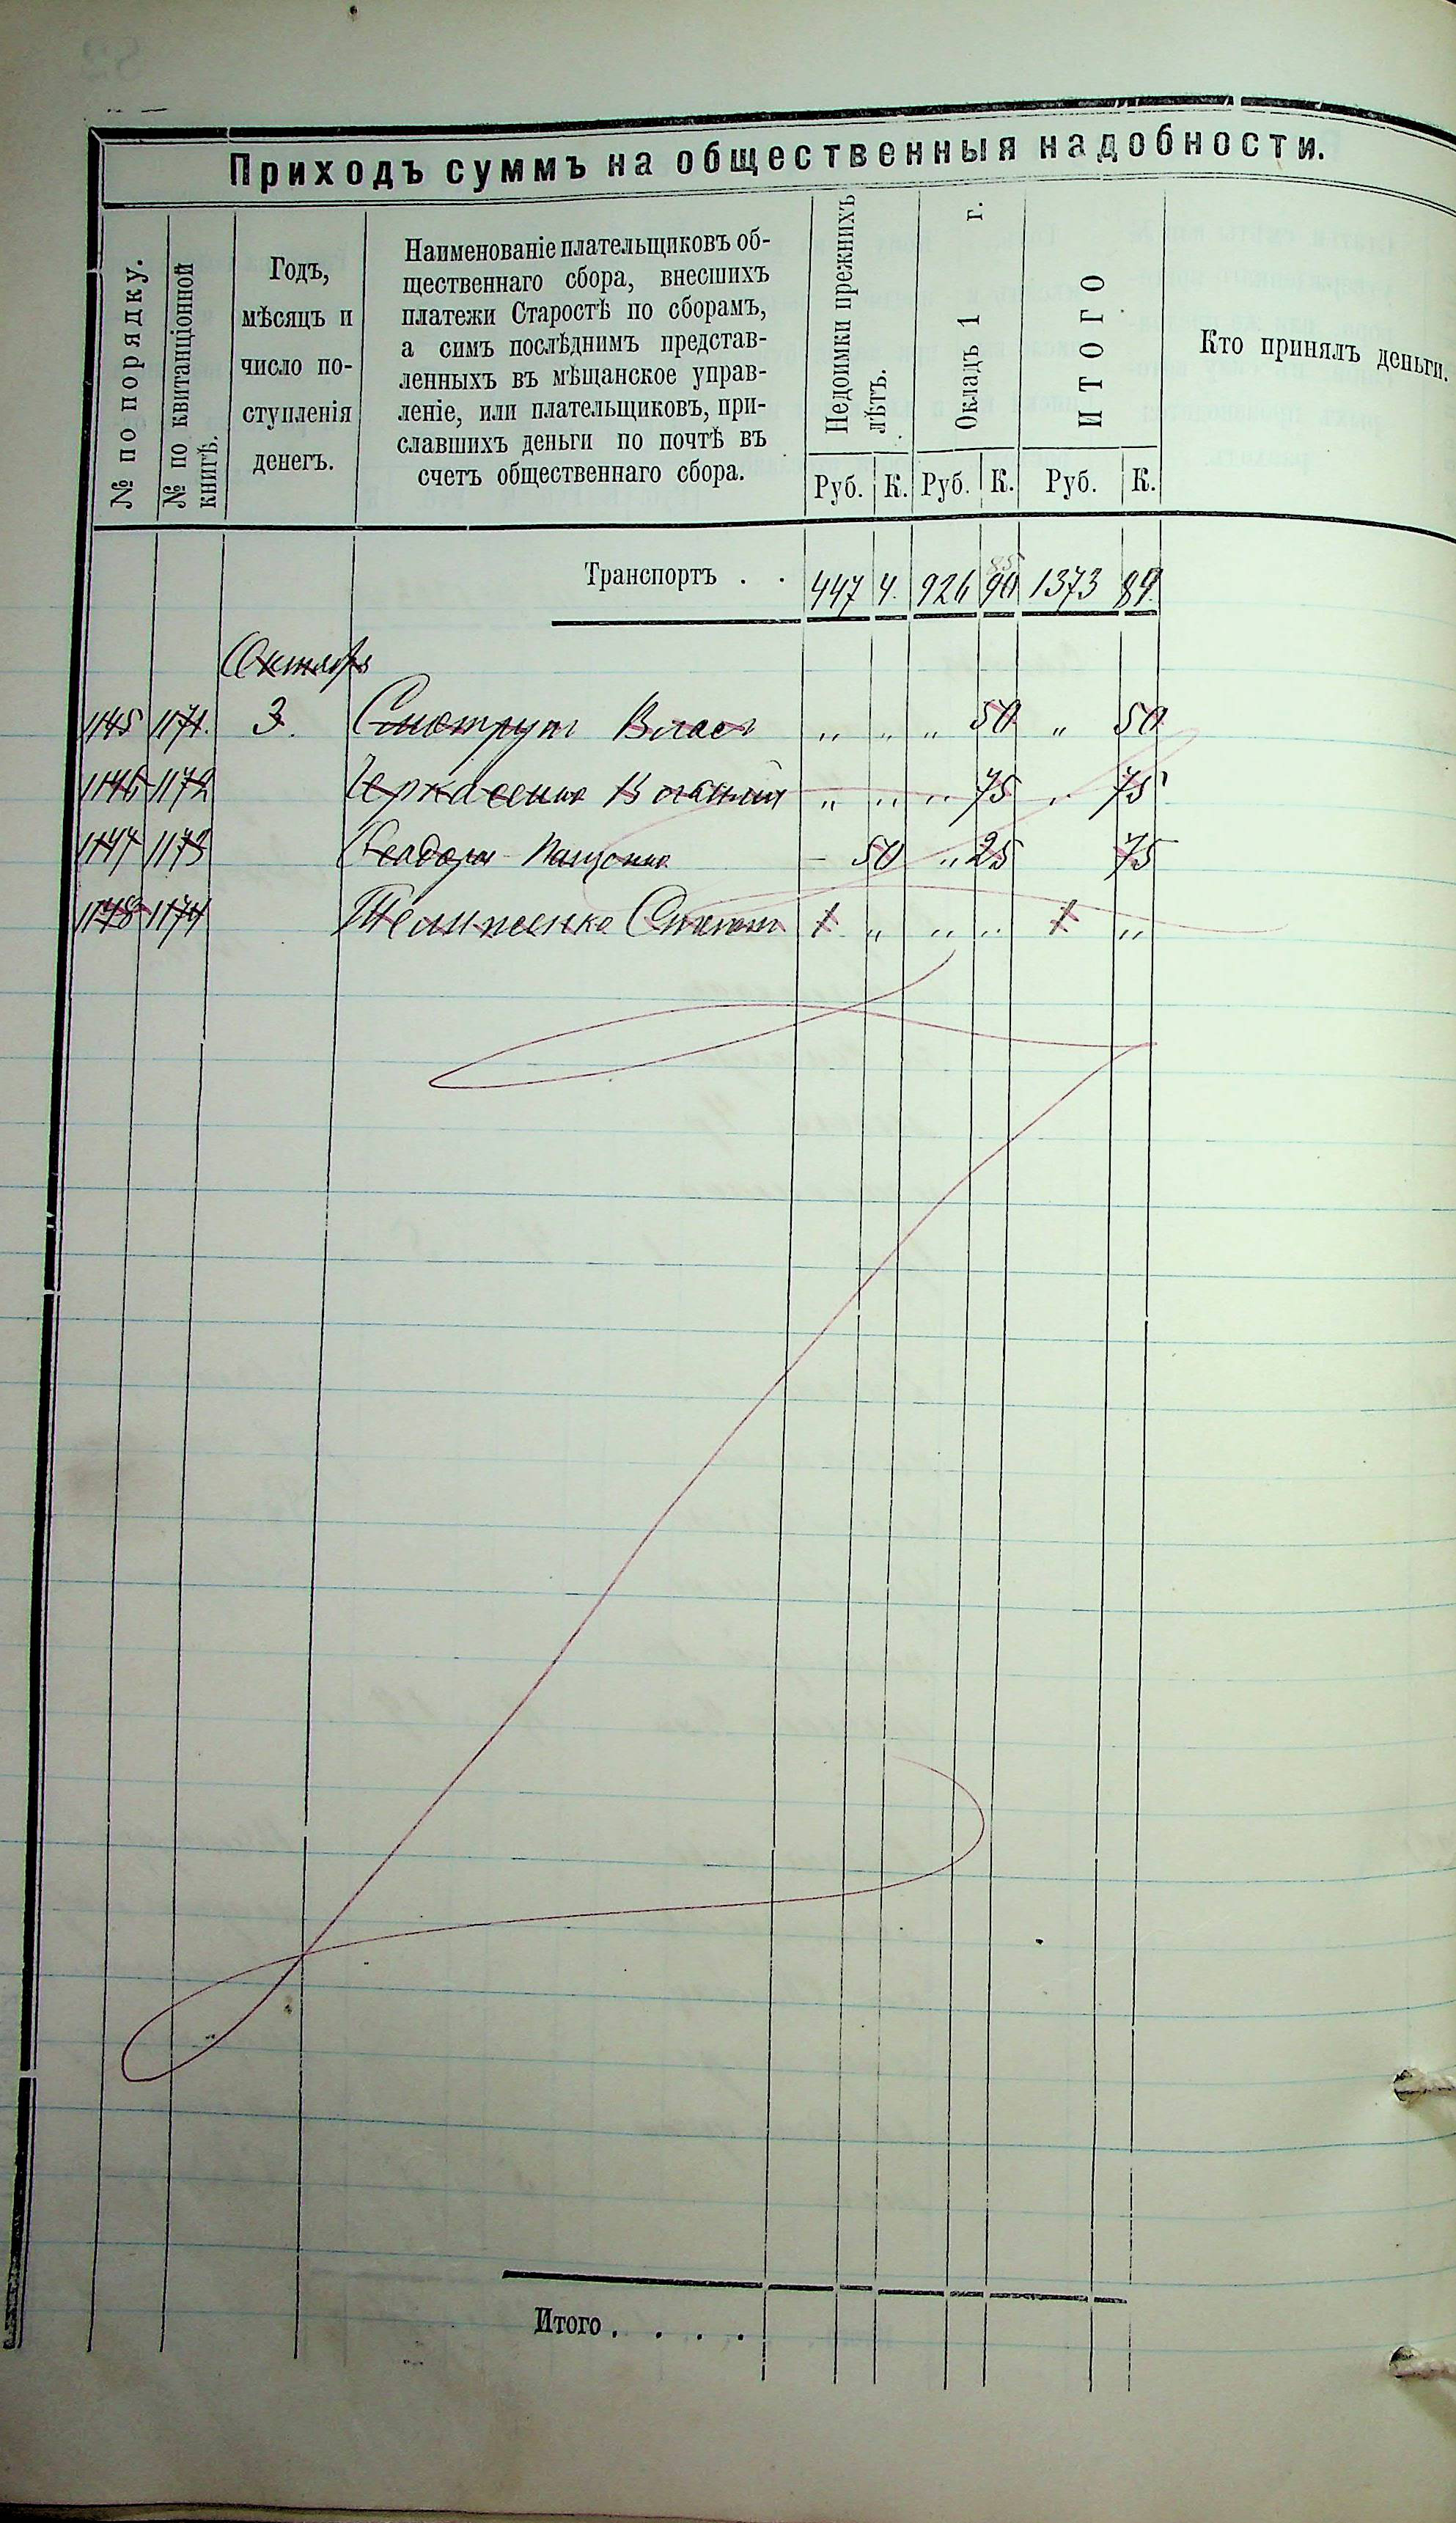 Приходъ суммъ на общественныя надобности.
№ по порядку.
№ по квитанціонной
книгѣ.
Годъ,
мѣсяцъ и
число по-
ступленія
денегъ.
Наименованіе плательщиковъ об-
щественнаго сбора, внесшихъ
платежи Старостѣ по сборамъ,
а симъ послѣднимъ представ-
ленныхъ въ мѣщанское управ-
леніе, или плательщиковъ, при-
славшихъ деньги по почтѣ въ
счетъ общественнаго сбора.
Недоимки прежнихъ
лѣтъ.
Окладъ 1 г.
ИТОГО
Кто принялъ деньги.
Руб. К. Руб. К. Руб. К.
Транспортъ . . 447 4. 926 85 1373 89.
Октябрь
1145 1171. 3. Власъ „ „ „ 50 „ 50
1146 1172 „ „ „ 75 „ 75
1147 1173 – 50 „ 25 75
1148 1174 1 „ „ „ 1 „
Итого . . . .